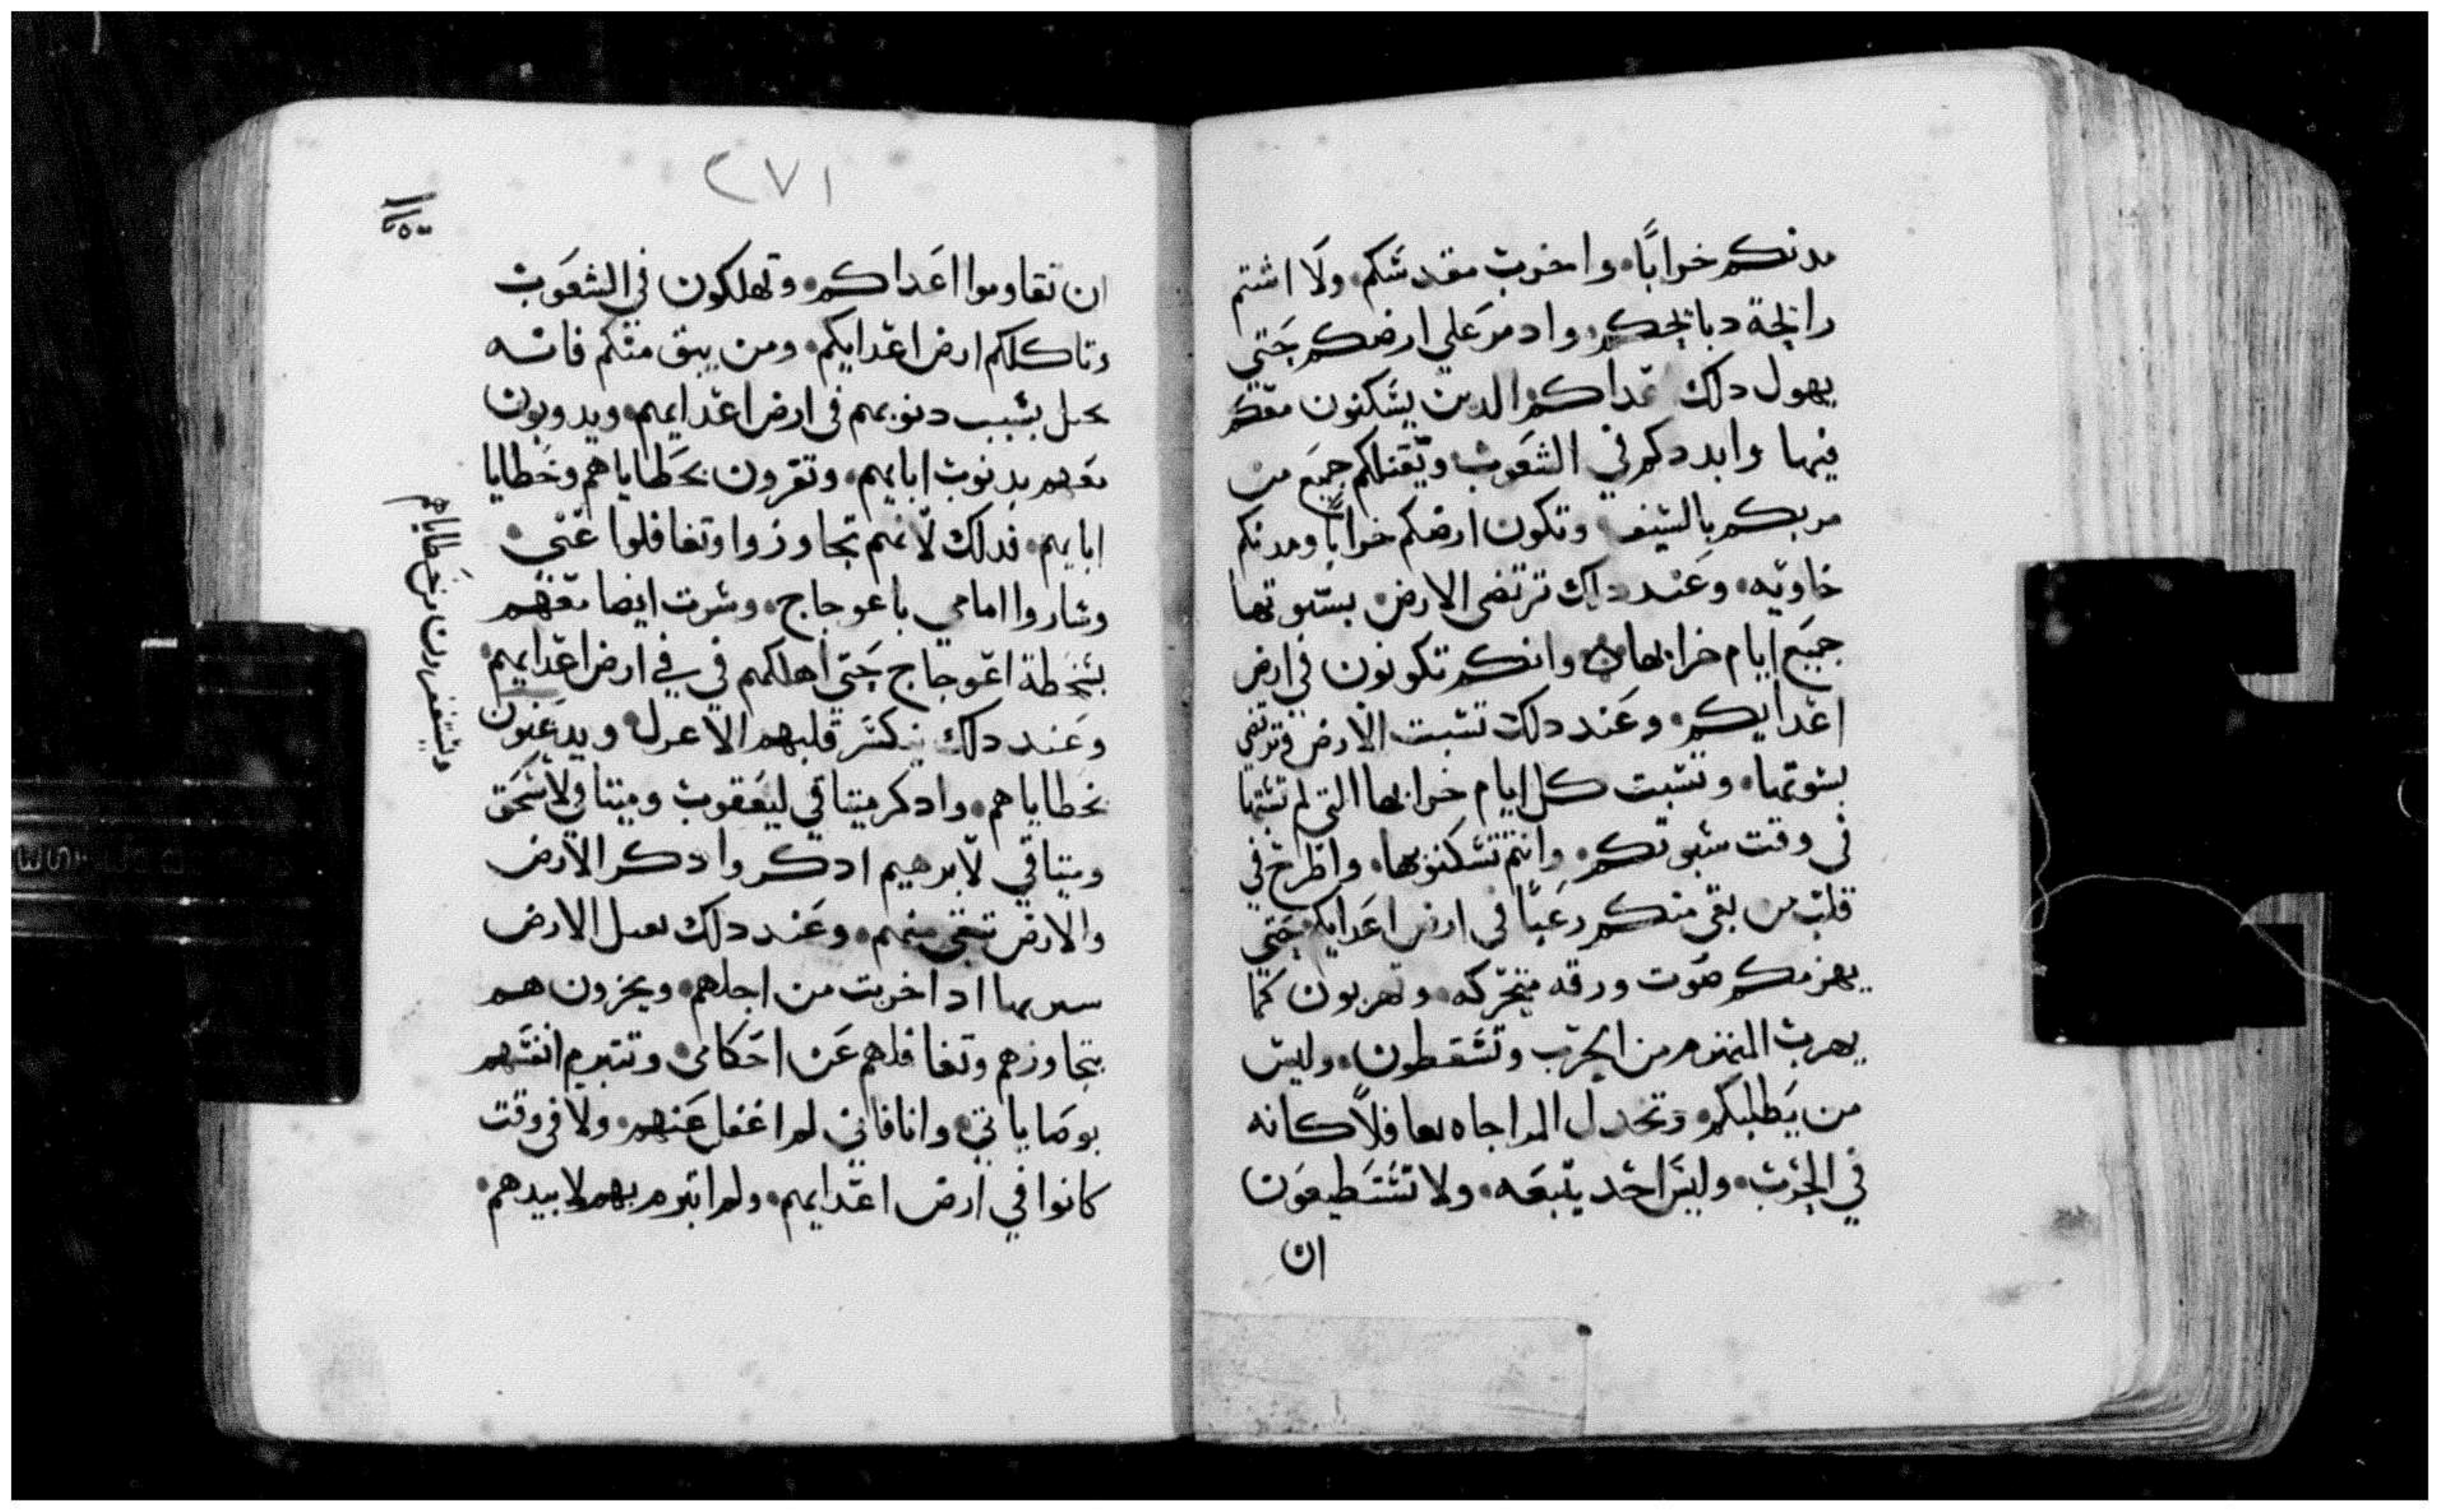 مدنكم خرابًا. واخرب مقدسكم ولا اشتم
رايحة دبايحكم. وادمر علي ارضكم حتي
يهول دلك اعداكم الدين يسكنون معكم
فيها وابددكم في الشعوب وتفنيكم جميع من
مربكم بالسيف وتكون ارضكم خرابًا ومدنكم
خاويه. وعند دلك ترتضي الارض بسبوتها
جميع ايام خرابها. وانكم تكونون في ارض
اعدايكم. وعند دلك تسبت الارض وترتضي
بسبوتها. وتسبت كل ايام خرابها التي لم تسبتها
في وقت سبوتكم. وانتم تسكنونها. واطرح في
قلب من بقي منكم رعبًا في ارض اعدايكم حتي
يهزمكم صوت ورقه متحركه. وتهربون كما
يهرب المنهزم من الحرب وتسقطون. وليس
من يطلبكم. وتخدل المر اجاه فلاً كانه
في الحرب. وليس احد يتبعه. ولا تستطيعون
ان
٢٧١
ان تقاوموا اعداكم. وتهلكون في الشعوب
وتاكلكم ارض اعدايكم. ومن يبق منكم فانه
يحل بسبب دنوبهم في ارض اعدايهم. ويدوبون
معهم بدنوب ابايهم. وتقرون بخطاياهم وخطايا
ابايهم. فدلك لانهم تجاوزوا وتغافلوا عني.
وساروا امامي باعوجاج. وسرت ايضا معهم
بسخطة اعوجاج حتي اهلكهم في في ارض اعدايهم.
وعند دلك ينكسر قلبهم الاعرل. ويدعنون
بخطاياهم. وادكر ميتاقي ليعقوب وميتاقي لاسحق
وميتاقي لابرهيم ادكر وادكر الارض
والارض تبقي منهم. وعند دلك تقبل الارض
سبوتها ادا خربت من اجلهم. ويخزون هم
بتجاوزهم وتغافلهم عن احكامي. وتتبرم انفسهم
بوصاياتي. وانا فاني لم اغفل عنهم. ولا في وقت
كانوا في ارض اعدايهم. ولم اتبرم بهم لابيدهم.
ويستغفرون من خطاياهم